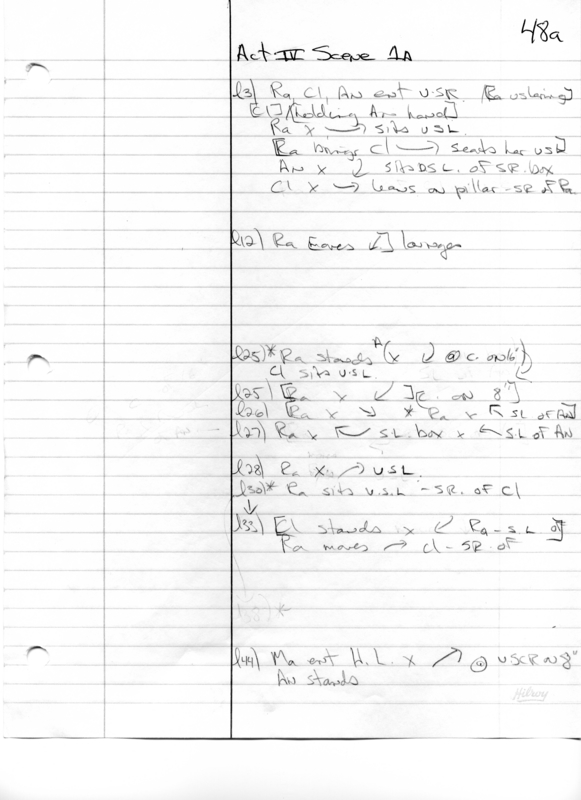 48a
Act IV Scene 1A
l3) Ra, Cl, An ent U.SR. [Ra ushering]
[Cl] / [holding An hand]
Ra x → sits USL.
[Ra brings Cl → seats her USL
An x ↙ sits DSL. of SR. box
Cl x → leans on pillar - SR of Ra
l12) Ra ↙] lounges
l25)* Ra stands A (x ↙ @ C. on 16")
Cl sits U.SL
l25) [Ra x ↙ ]R. on 8"]
l26) [Ra x ↘ * Ra x ↖ SL of AN]
l27) Ra x ↖ SL. box x ↖ SL of AN
l28) Ra x ↗ USL.
l30)* Ra sits U.S.L - SR. of Cl
↓
l33) [Cl stands x ↙ Ra - S.L of]
Ra moves → Cl - SR of
l44) Ma ent H.L. x ↗ @ USCR on 8"
An stands
Hilroy